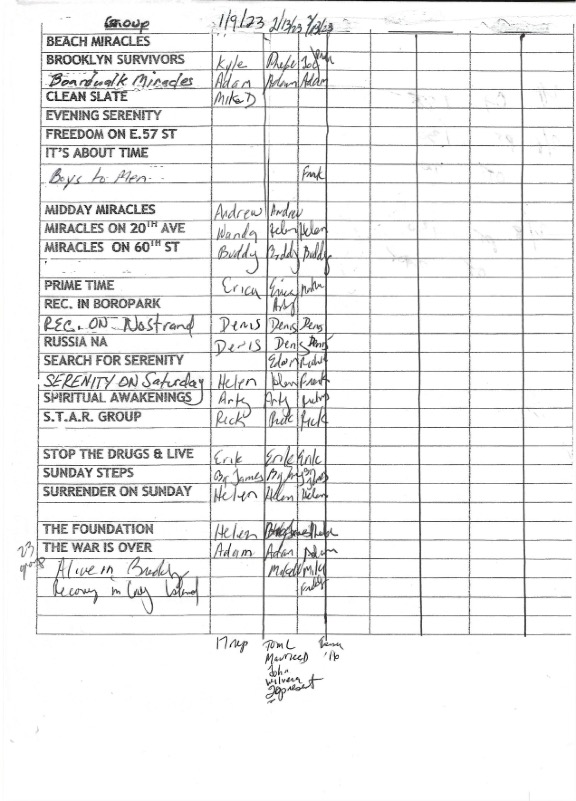 Group 1/9/23 2/13/23 3/13/23
BEACH MIRACLES
BROOKLYN SURVIVORS Kyle
Boardwalk Miracles Adam Adam Adam
CLEAN SLATE Mike D
EVENING SERENITY
FREEDOM ON E.57 ST
IT'S ABOUT TIME
Boys to Men Frank
MIDDAY MIRACLES Andrew Andrew
MIRACLES ON 20TH AVE Wanda Helen Helen
MIRACLES ON 60TH ST Buddy Buddy Buddy
PRIME TIME Erica Erica
REC. IN BOROPARK Arty
REC. ON Nostrand Denis Denis Denis
RUSSIA NA Denis Denis Denis
SEARCH FOR SERENITY
SERENITY ON Saturday Helen Helen Frank
SPIRITUAL AWAKENINGS Arty Arty
S.T.A.R. GROUP Rick Rick Rick
STOP THE DRUGS & LIVE Erik Erik Erik
SUNDAY STEPS Big James Big James
SURRENDER ON SUNDAY Helen Helen Helen
THE FOUNDATION Helen
THE WAR IS OVER Adam Adam Adam
23
Alive in
Recovery in Coney Island
17 rep Tom L
Maurice D
John